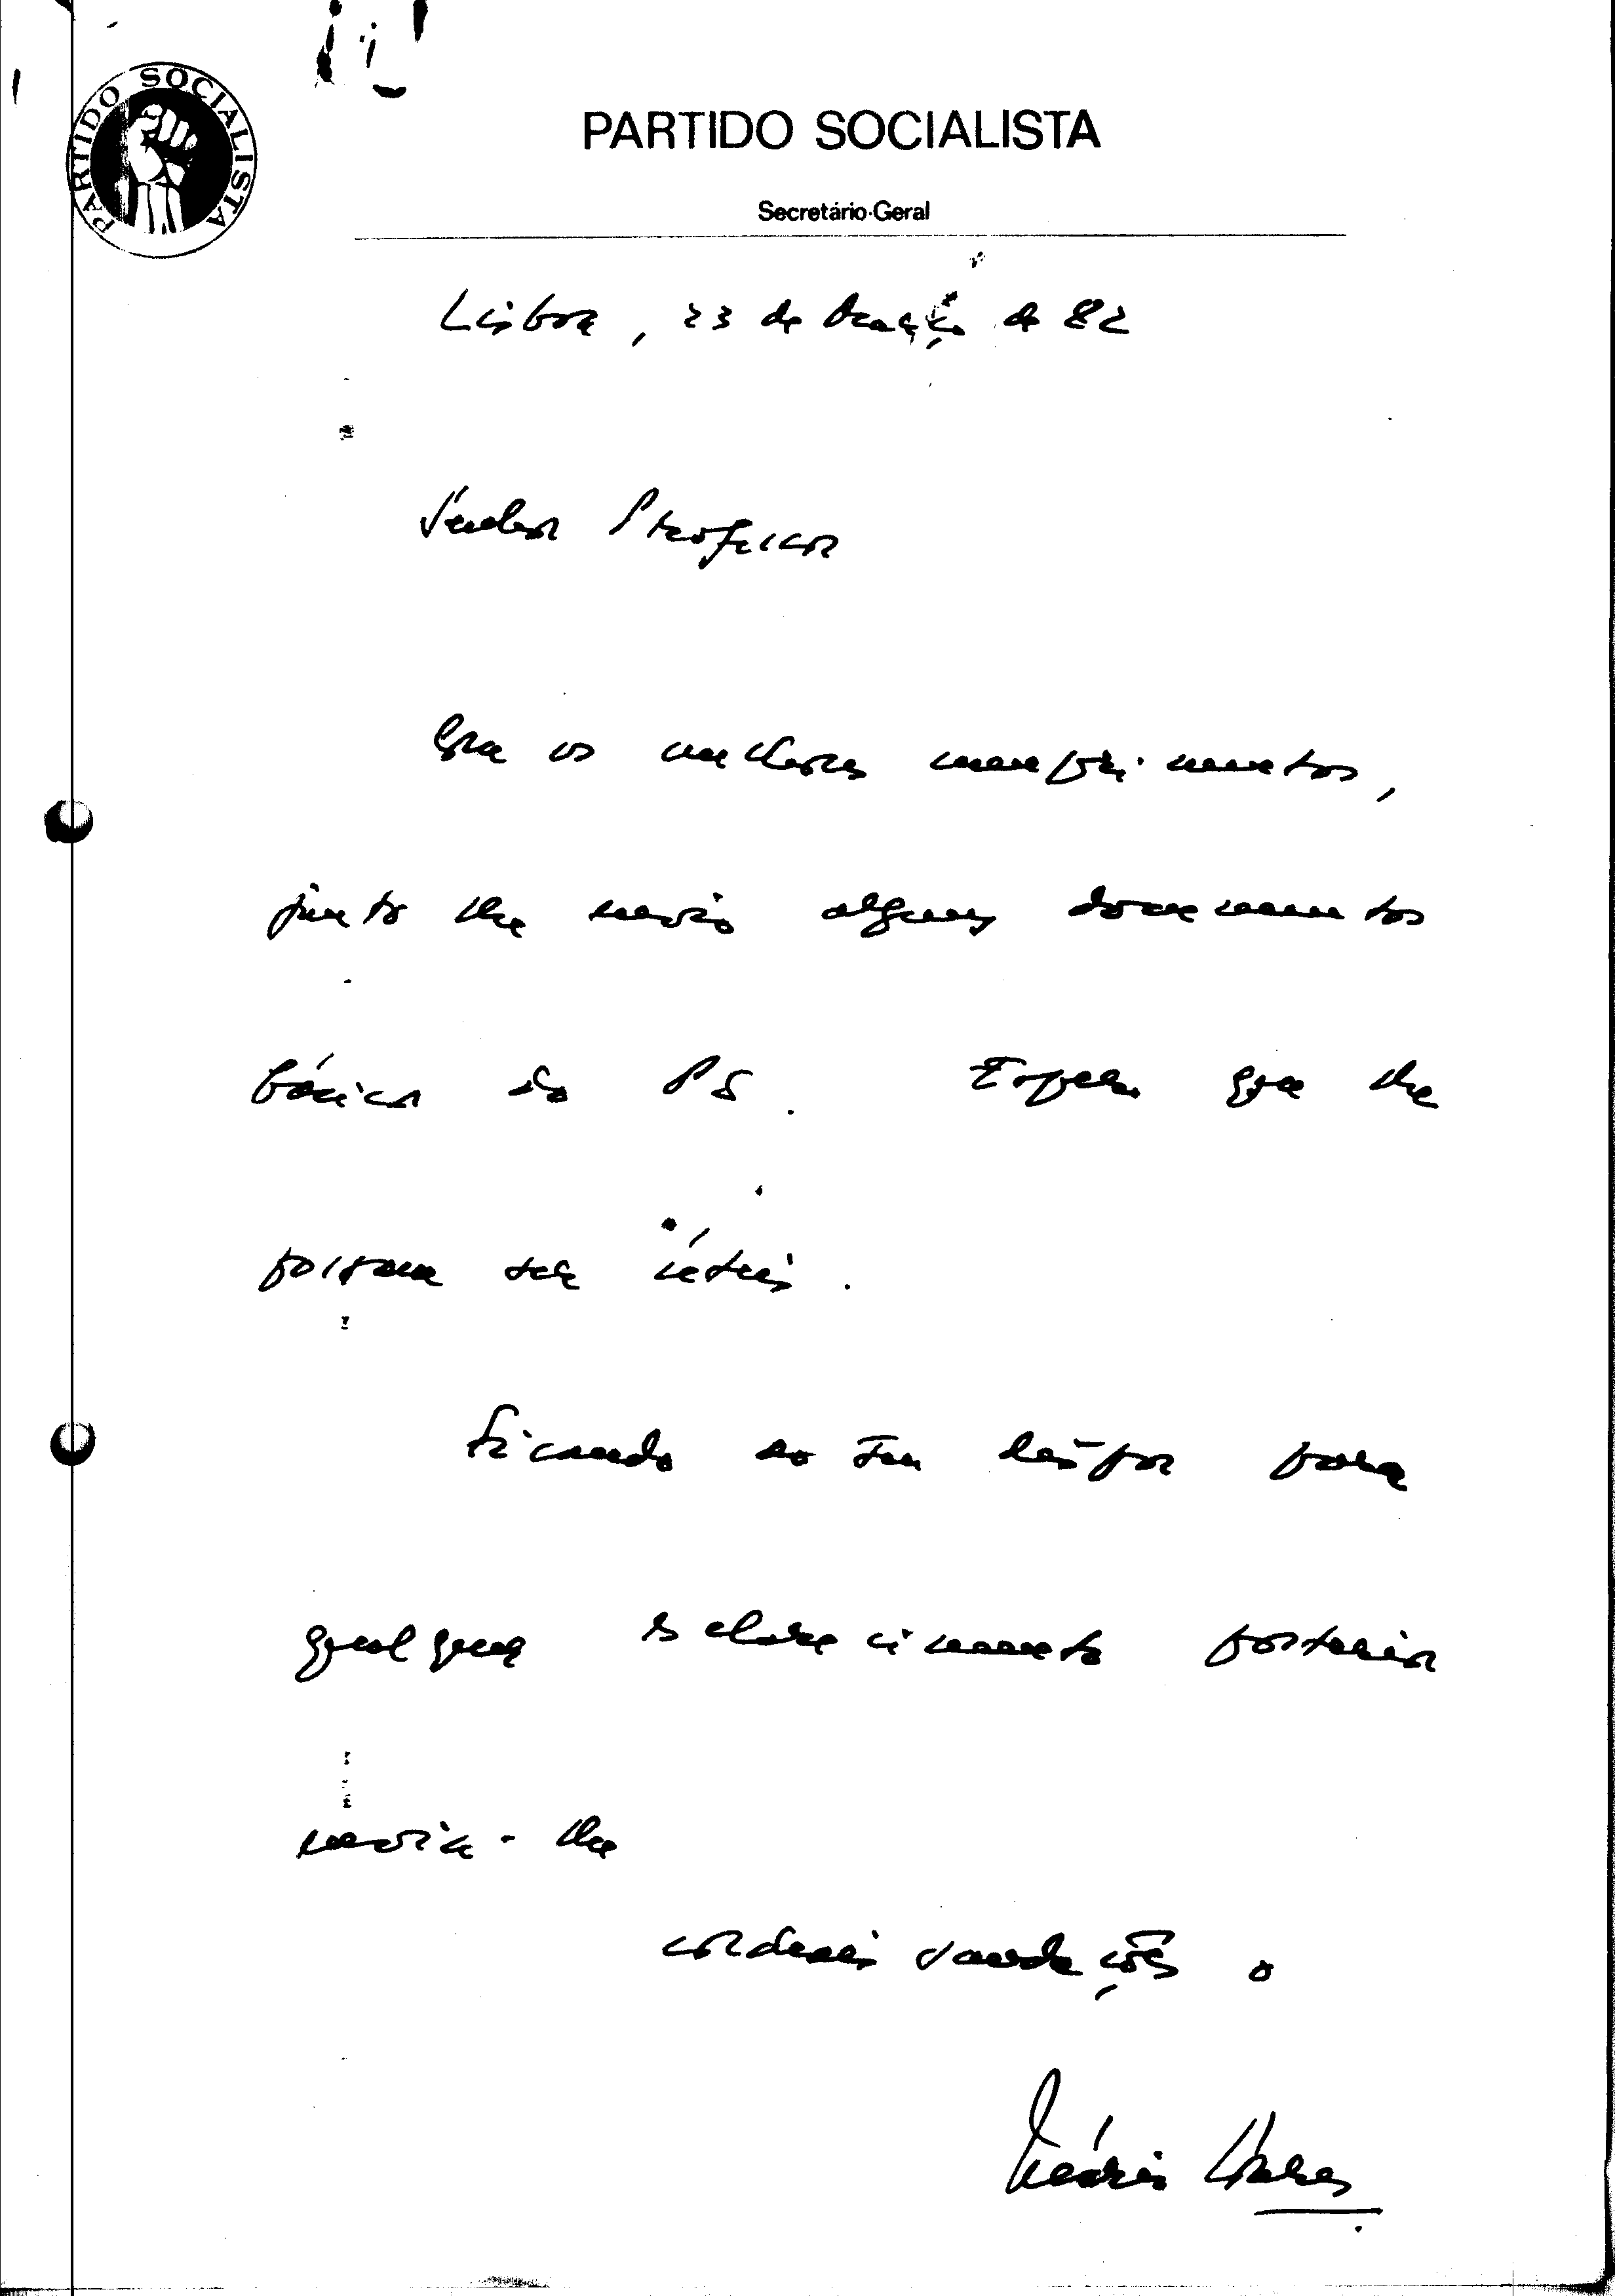 PARTIDO SOCIALISTA
PARTIDO SOCIALISTA
Secretário-Geral
Lisboa, 23 de Março de 82
Senhor Professor
Com os melhores cumprimentos,
junto lhe envio alguns documentos
básicos do PS. Espero que lhe
possam ser úteis.
Ficando ao seu dispor para
qualquer esclarecimento posterior
envia-lhe
cordeais saudações o
Mário Soares